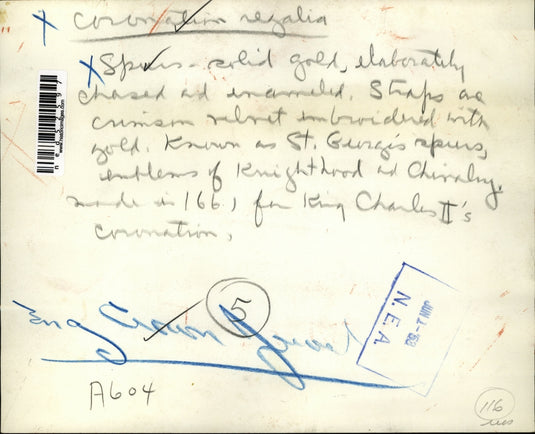 X coronation regalia
X Spurs - solid gold, elaborately
chased ad enameled. Straps are
crimson velvet embroidered with
gold. Known as St. George's spurs,
emblems of Knighthood ad Chivalry.
made in 1661 for King Charles II's
coronation.
5
Eng Crown Jewel
JUN 2-1953
N.E.A.
A604
116